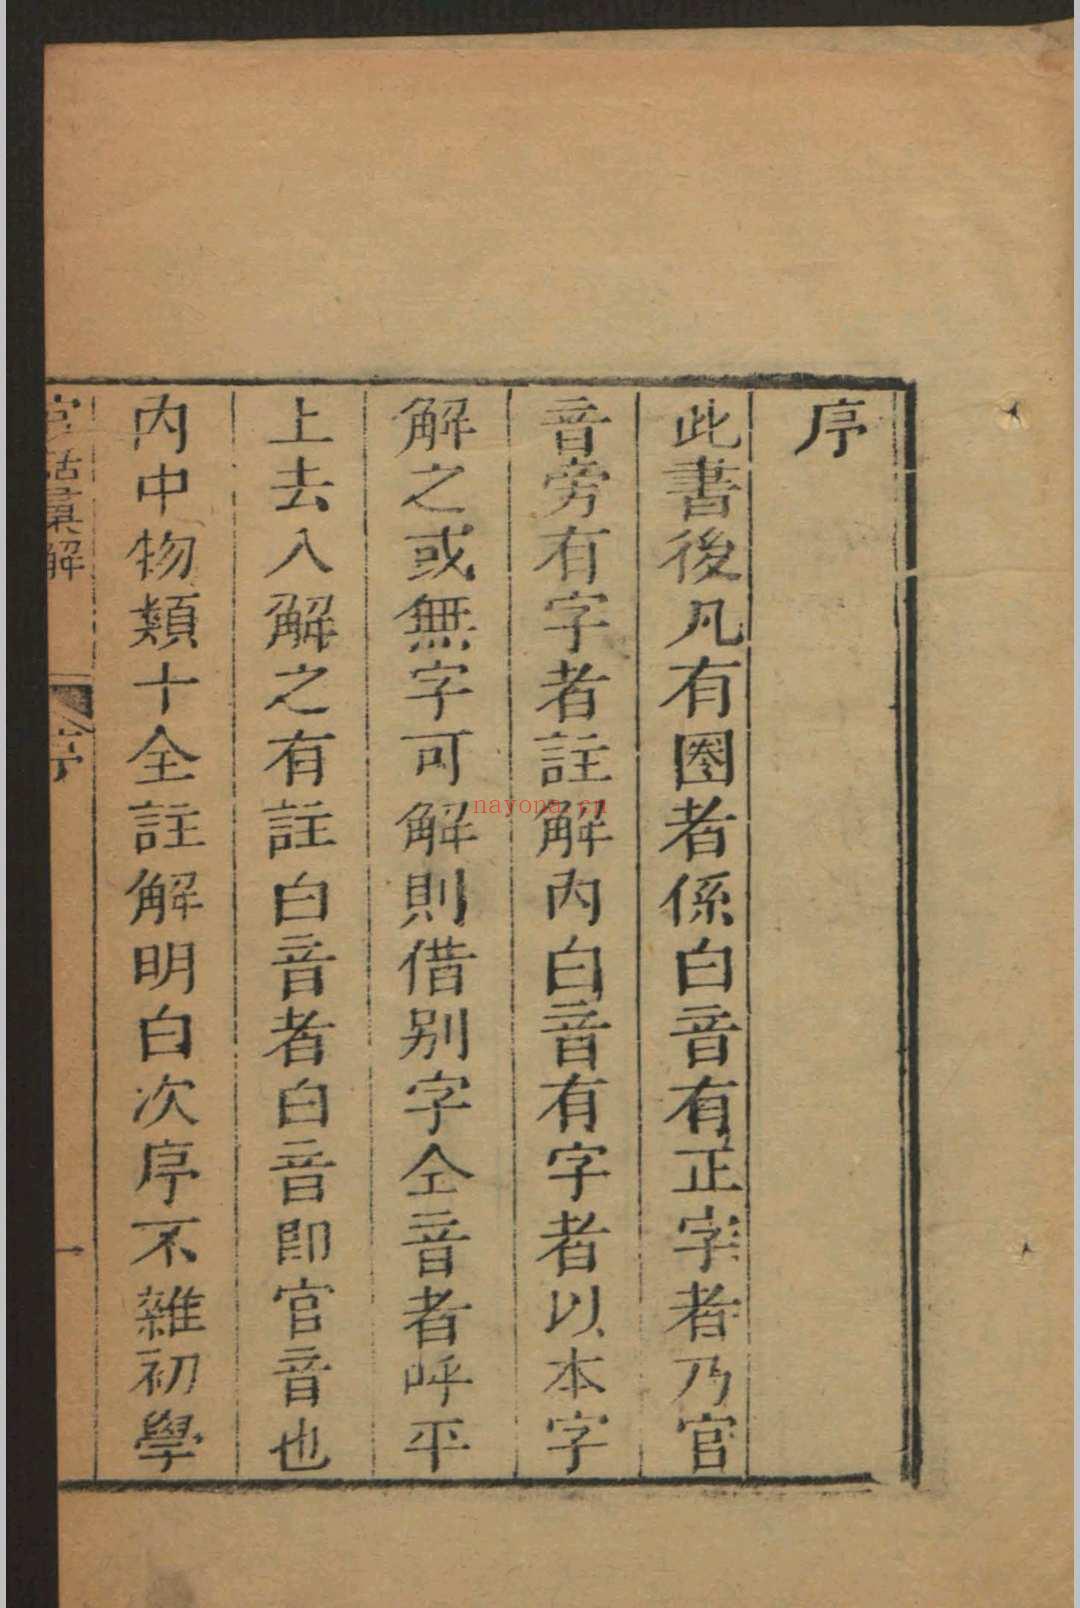 序
此書後凡有圈者係白音有正字者乃官
音旁有字者註解內白音有字者以本字
解之或無字可解則借别字仝音者呼平
上去入解之有註白音者白音即官音也
內中物類十全註解明白次序不雜初學
官話彙解
序
一
nayona.cn